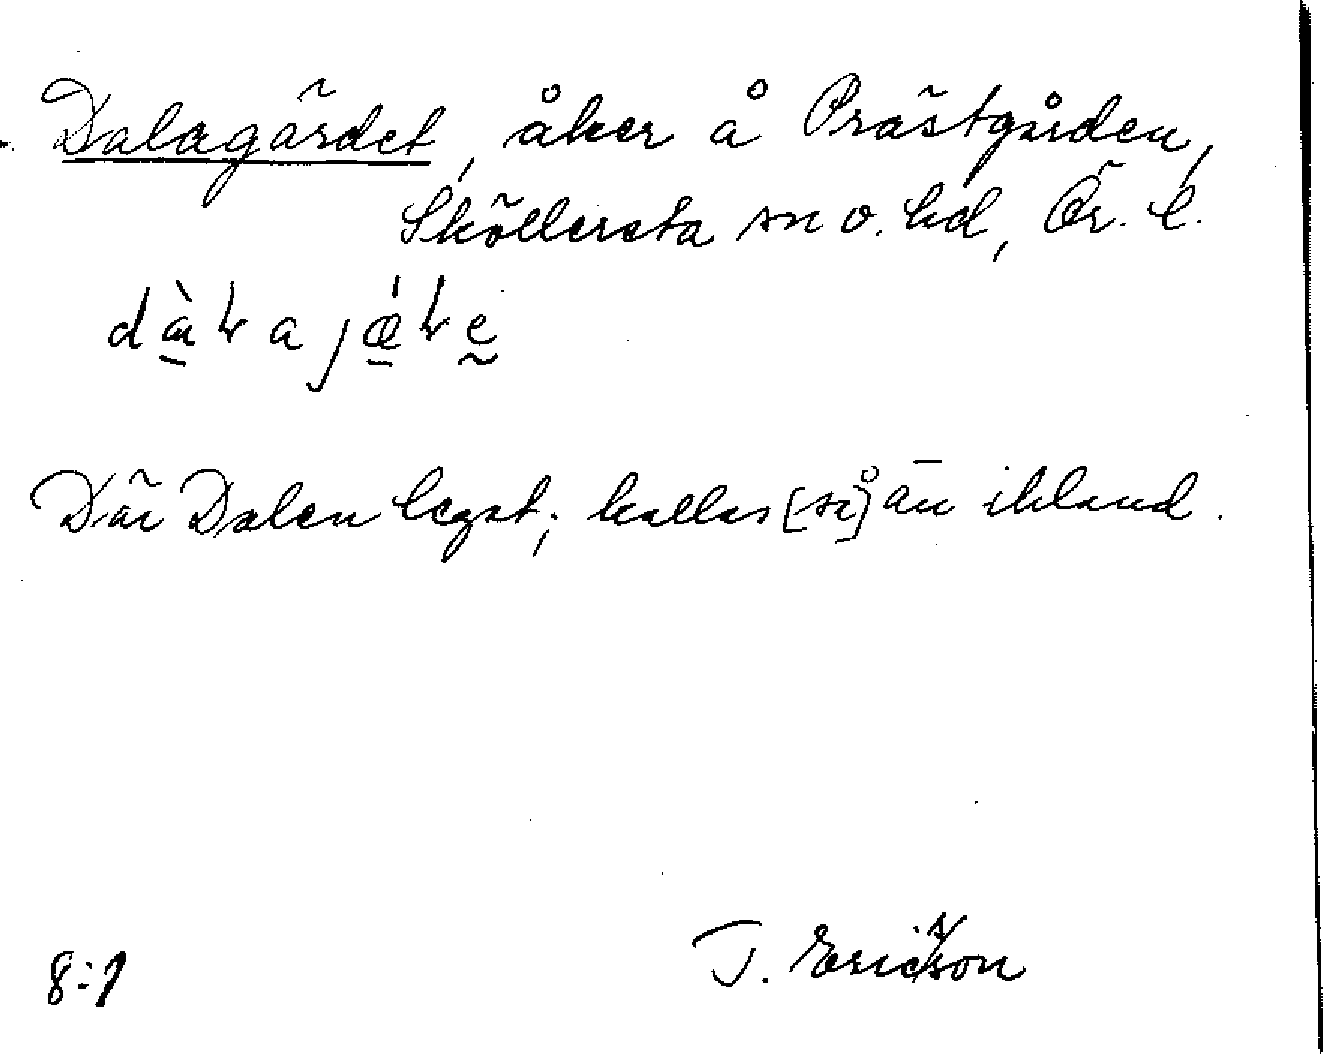 Dalagärdet, åker å Prästgården,
Sköllersta sn o. hd, Ör. l.
Där Dalen legat; kallas [så] än ibland.
8:1 T. Ericsson